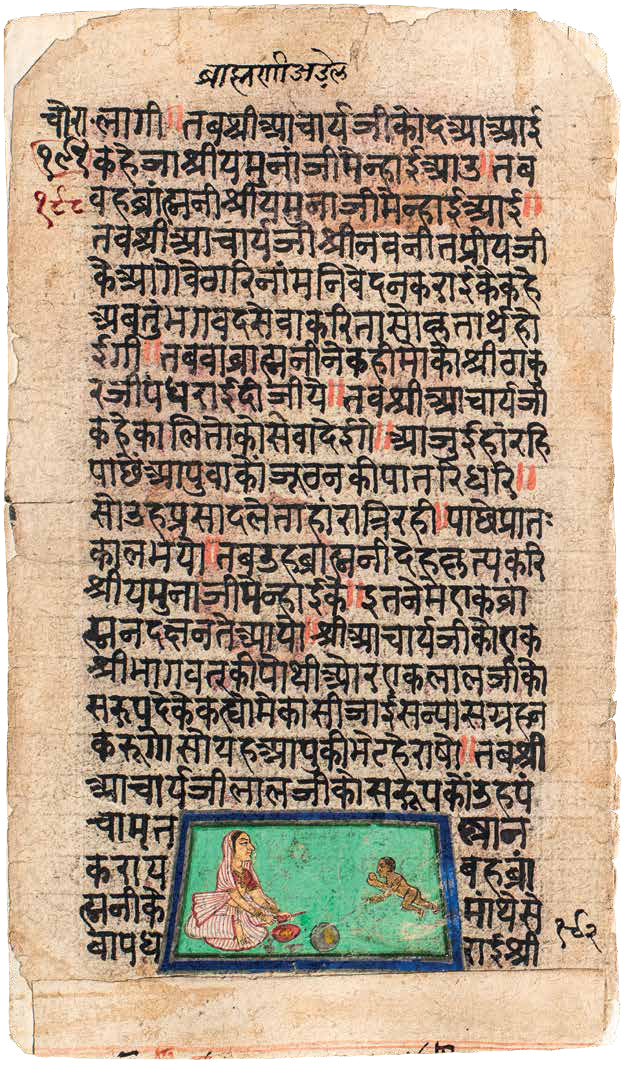 ब्राह्मणी अडेल
चौरा लागी ॥ तब श्री आचार्य जी कों दआ आई
१९१ कहे जा श्री यमुनां जी मैं न्हाई आउ ॥ तब
१८८ वह ब्रांह्मनी श्री यमुना जी मैं न्हाई आई ॥
तब श्री आचार्य जी श्री नवनीत प्रीय जी
के आगे वेगरि नांम निवेदन कराई के कहे
अब तुं भगवद सेवा करि ता सो कृतार्थ हो
ईगी ॥ तब वा ब्राह्मनी ने कही मोको श्री ठाकु
रजी पधराई दीजीये ॥ तब श्री आचार्य जी
कहे कालि तोको सेवा देईगे ॥ आजु ईहां रहि
पाछें आपु वाको जूठन की पातरि धरि ॥
सो उह प्रसाद लेता हां रात्रि रही ॥ पाछे प्रातः
काल भयो ॥ तब उह ब्राह्मनी देह कृत्य करि
श्री यमुना जी मैं न्हाई के ॥ इतने मे एक ब्रा
ह्मन दछन तें आयो ॥ श्री आचार्य जी को एक
श्री भागवत की पोथी ओर एक लालजी को
सरूप देके कह्यो मे कासी जाई सन्यास ग्रहन
करूगो सो यह आपकी भेट है राषो ॥ तब श्री
आचार्य जी लालजी को सरूप कों उह पं
चामृत स्नान
कराय वह ब्रां
ह्मनी के माथे से
वा पध राई श्री
१८२